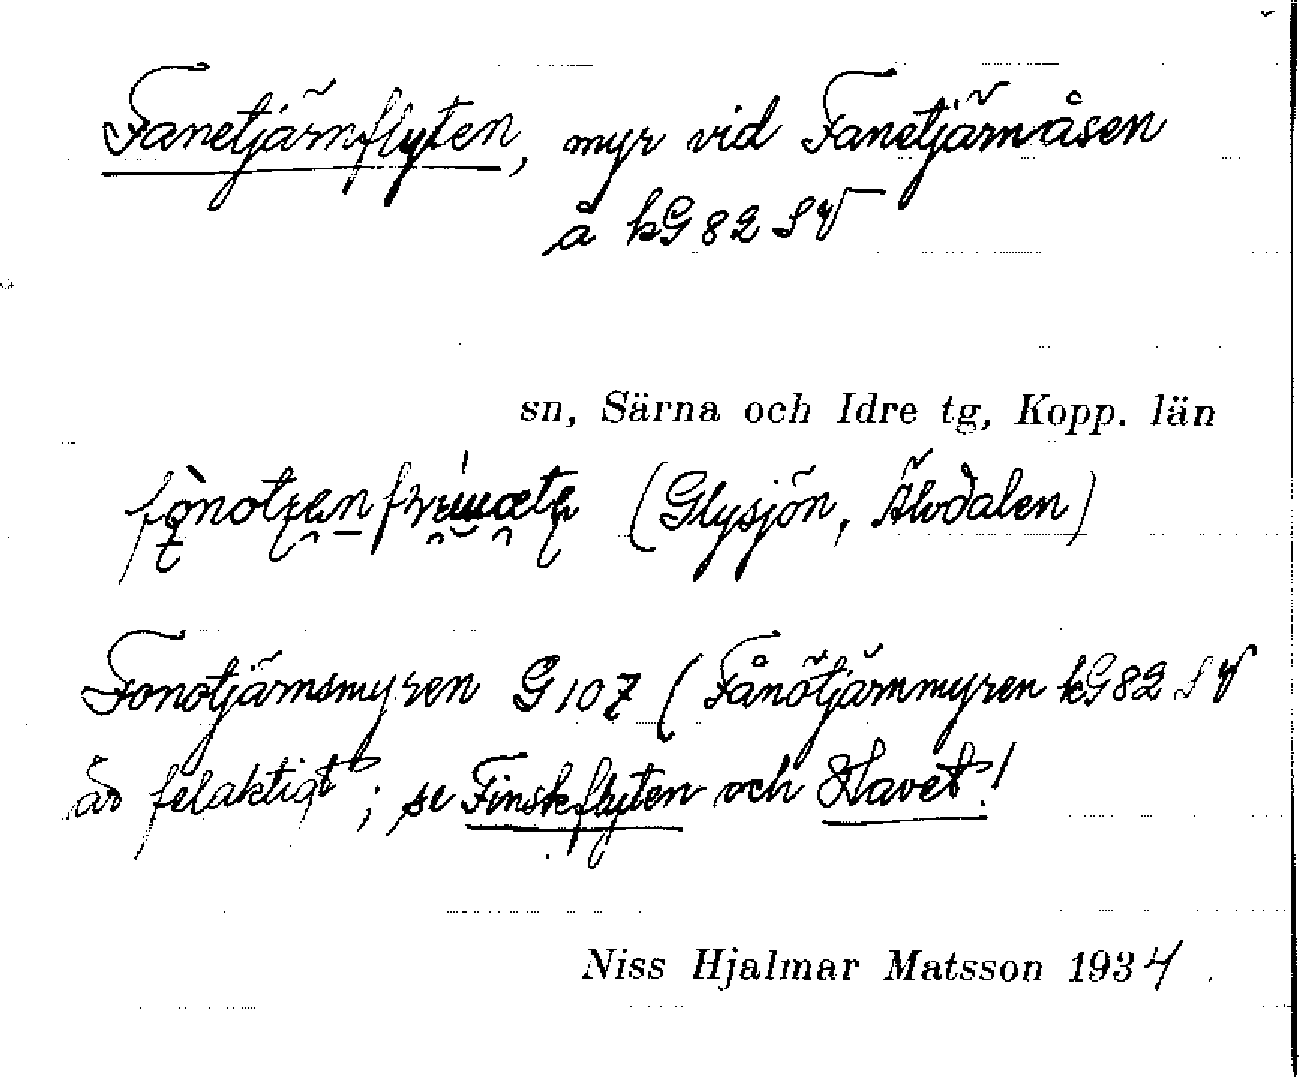 Fanetjärnflyten, myr vid Fanetjärnåsen
å kG 82 SV
sn, Särna och Idre tg, Kopp. län
(Glysjön, Älvdalen)
Fonotjärnsmyren G 107 (Fånötjärnmyren kG 82 SV
är felaktigt); se Finskflyten och Havet!
Niss Hjalmar Matsson 1934